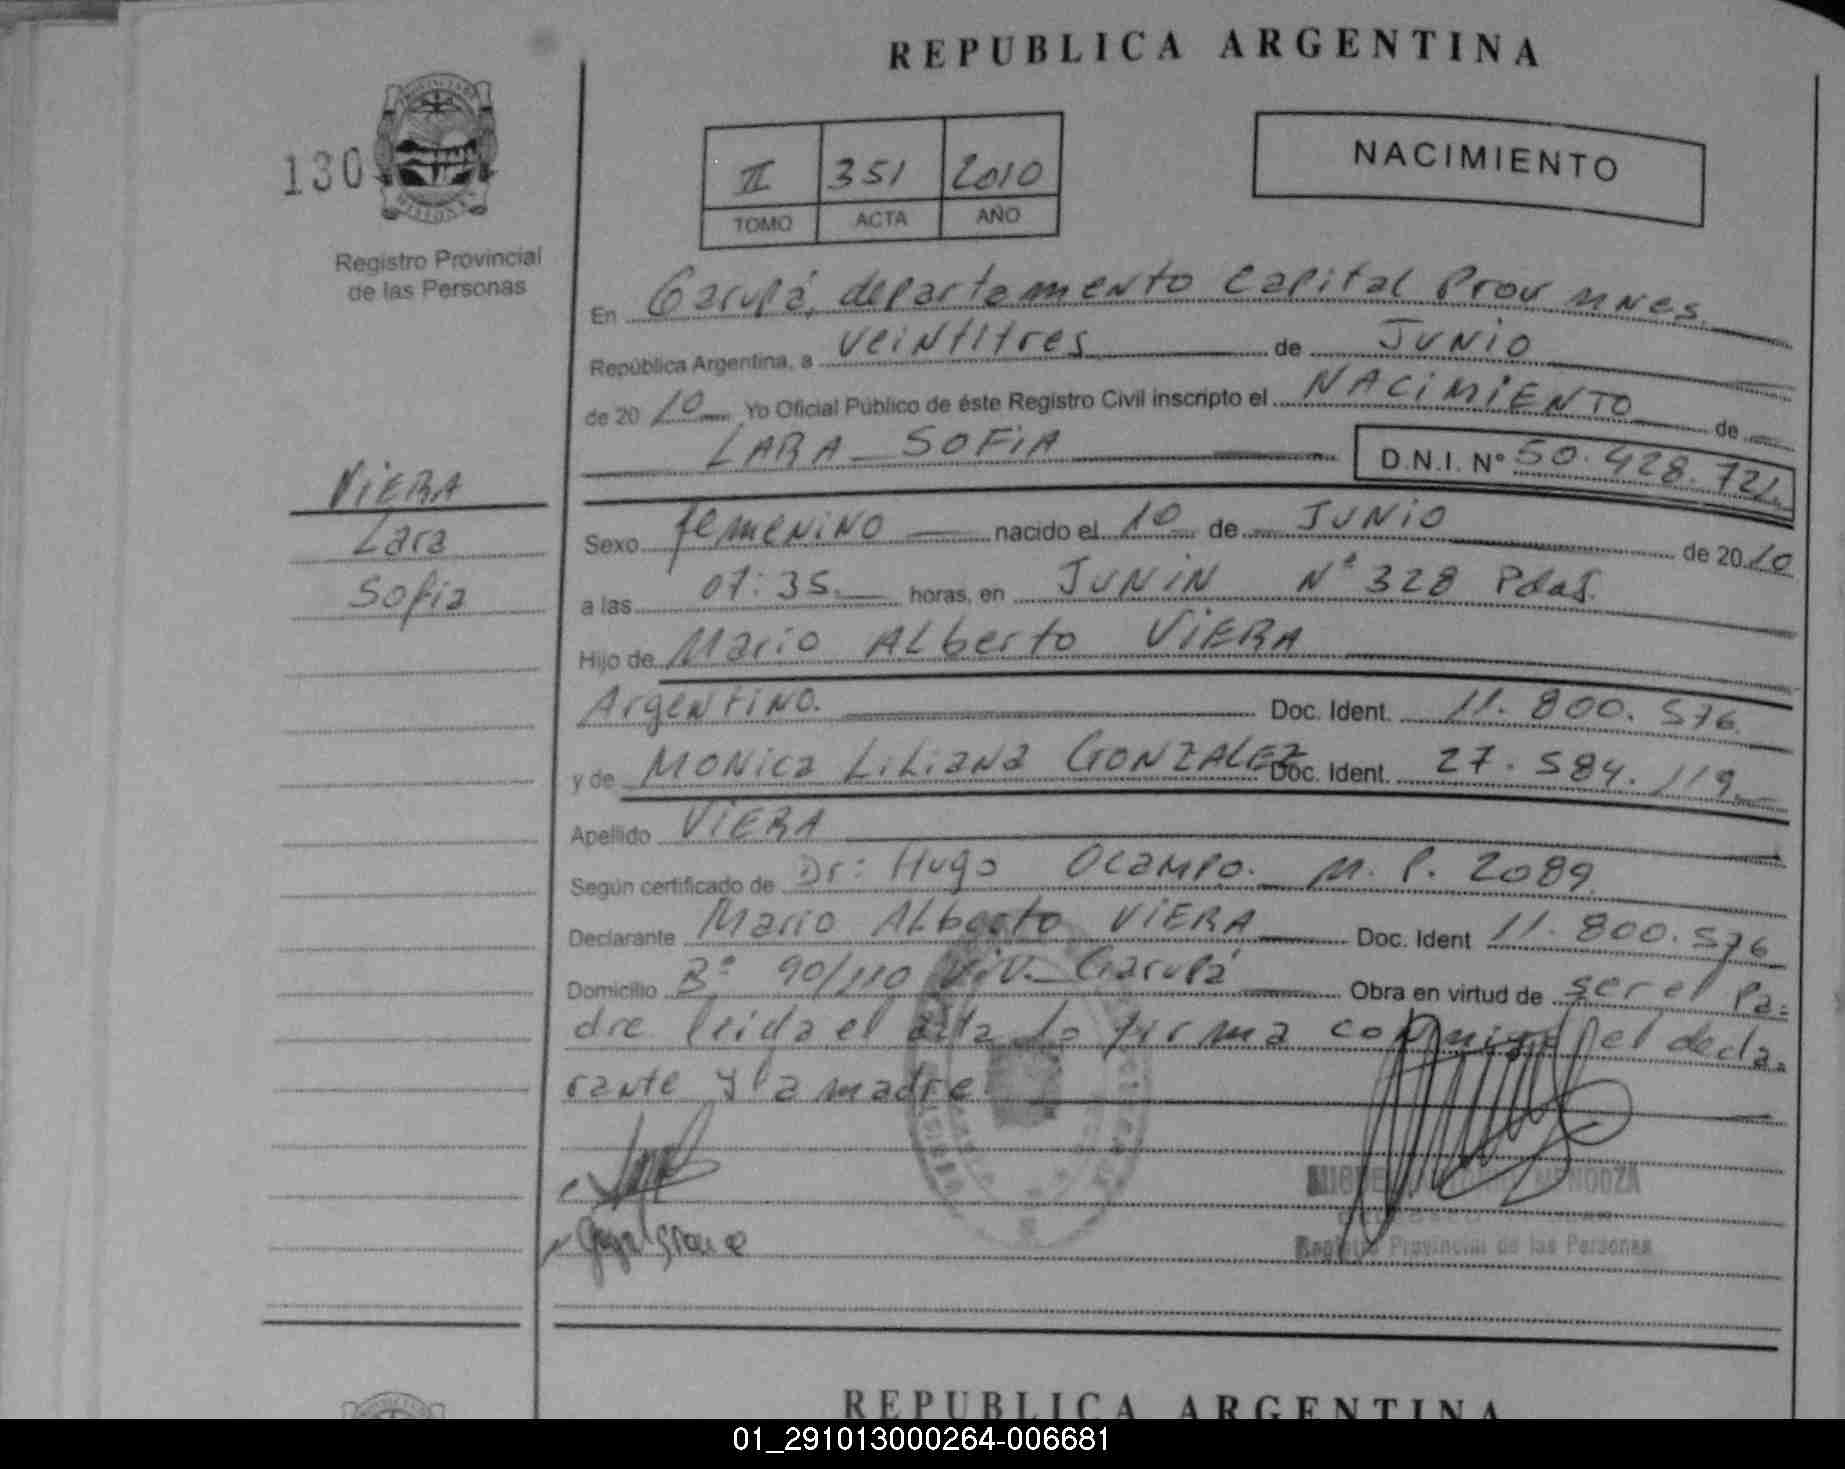 REPUBLICA ARGENTINA
130
Registro Provincial
de las Personas
II 351 2010
TOMO ACTA AÑO
NACIMIENTO
En Garupá, departamento Capital Prov mnes.
República Argentina, a veintitres de JUNIO
de 20 10 Yo Oficial Público de éste Registro Civil inscripto el NACIMIENTO de
LARA SOFIA D.N.I. Nº 50.428.721
VIERA
Lara
Sofia
Sexo femenino nacido el 10 de JUNIO de 20 10
a las 07:35 horas, en JUNIN Nº 328 Pdas.
Hijo de Mario ALberto VIERA
Argentino. Doc. Ident. 11.800.576
y de MONica LiLiana GONZALEZ Doc. Ident. 27.584.119
Apellido VIERA
Según certificado de Dr: Hugo Ocampo. M.P. 2089
Declarante Mario ALberto VIERA Doc. Ident 11.800.576
Domicilio Bº 90/110 Viv. Garupá Obra en virtud de ser el Pa-
dre leida el acta la firma conmigo el decla-
rante y la madre
MENDOZA
Registro Provincial de las Personas
REPUBLICA ARGENTINA
01_291013000264-006681